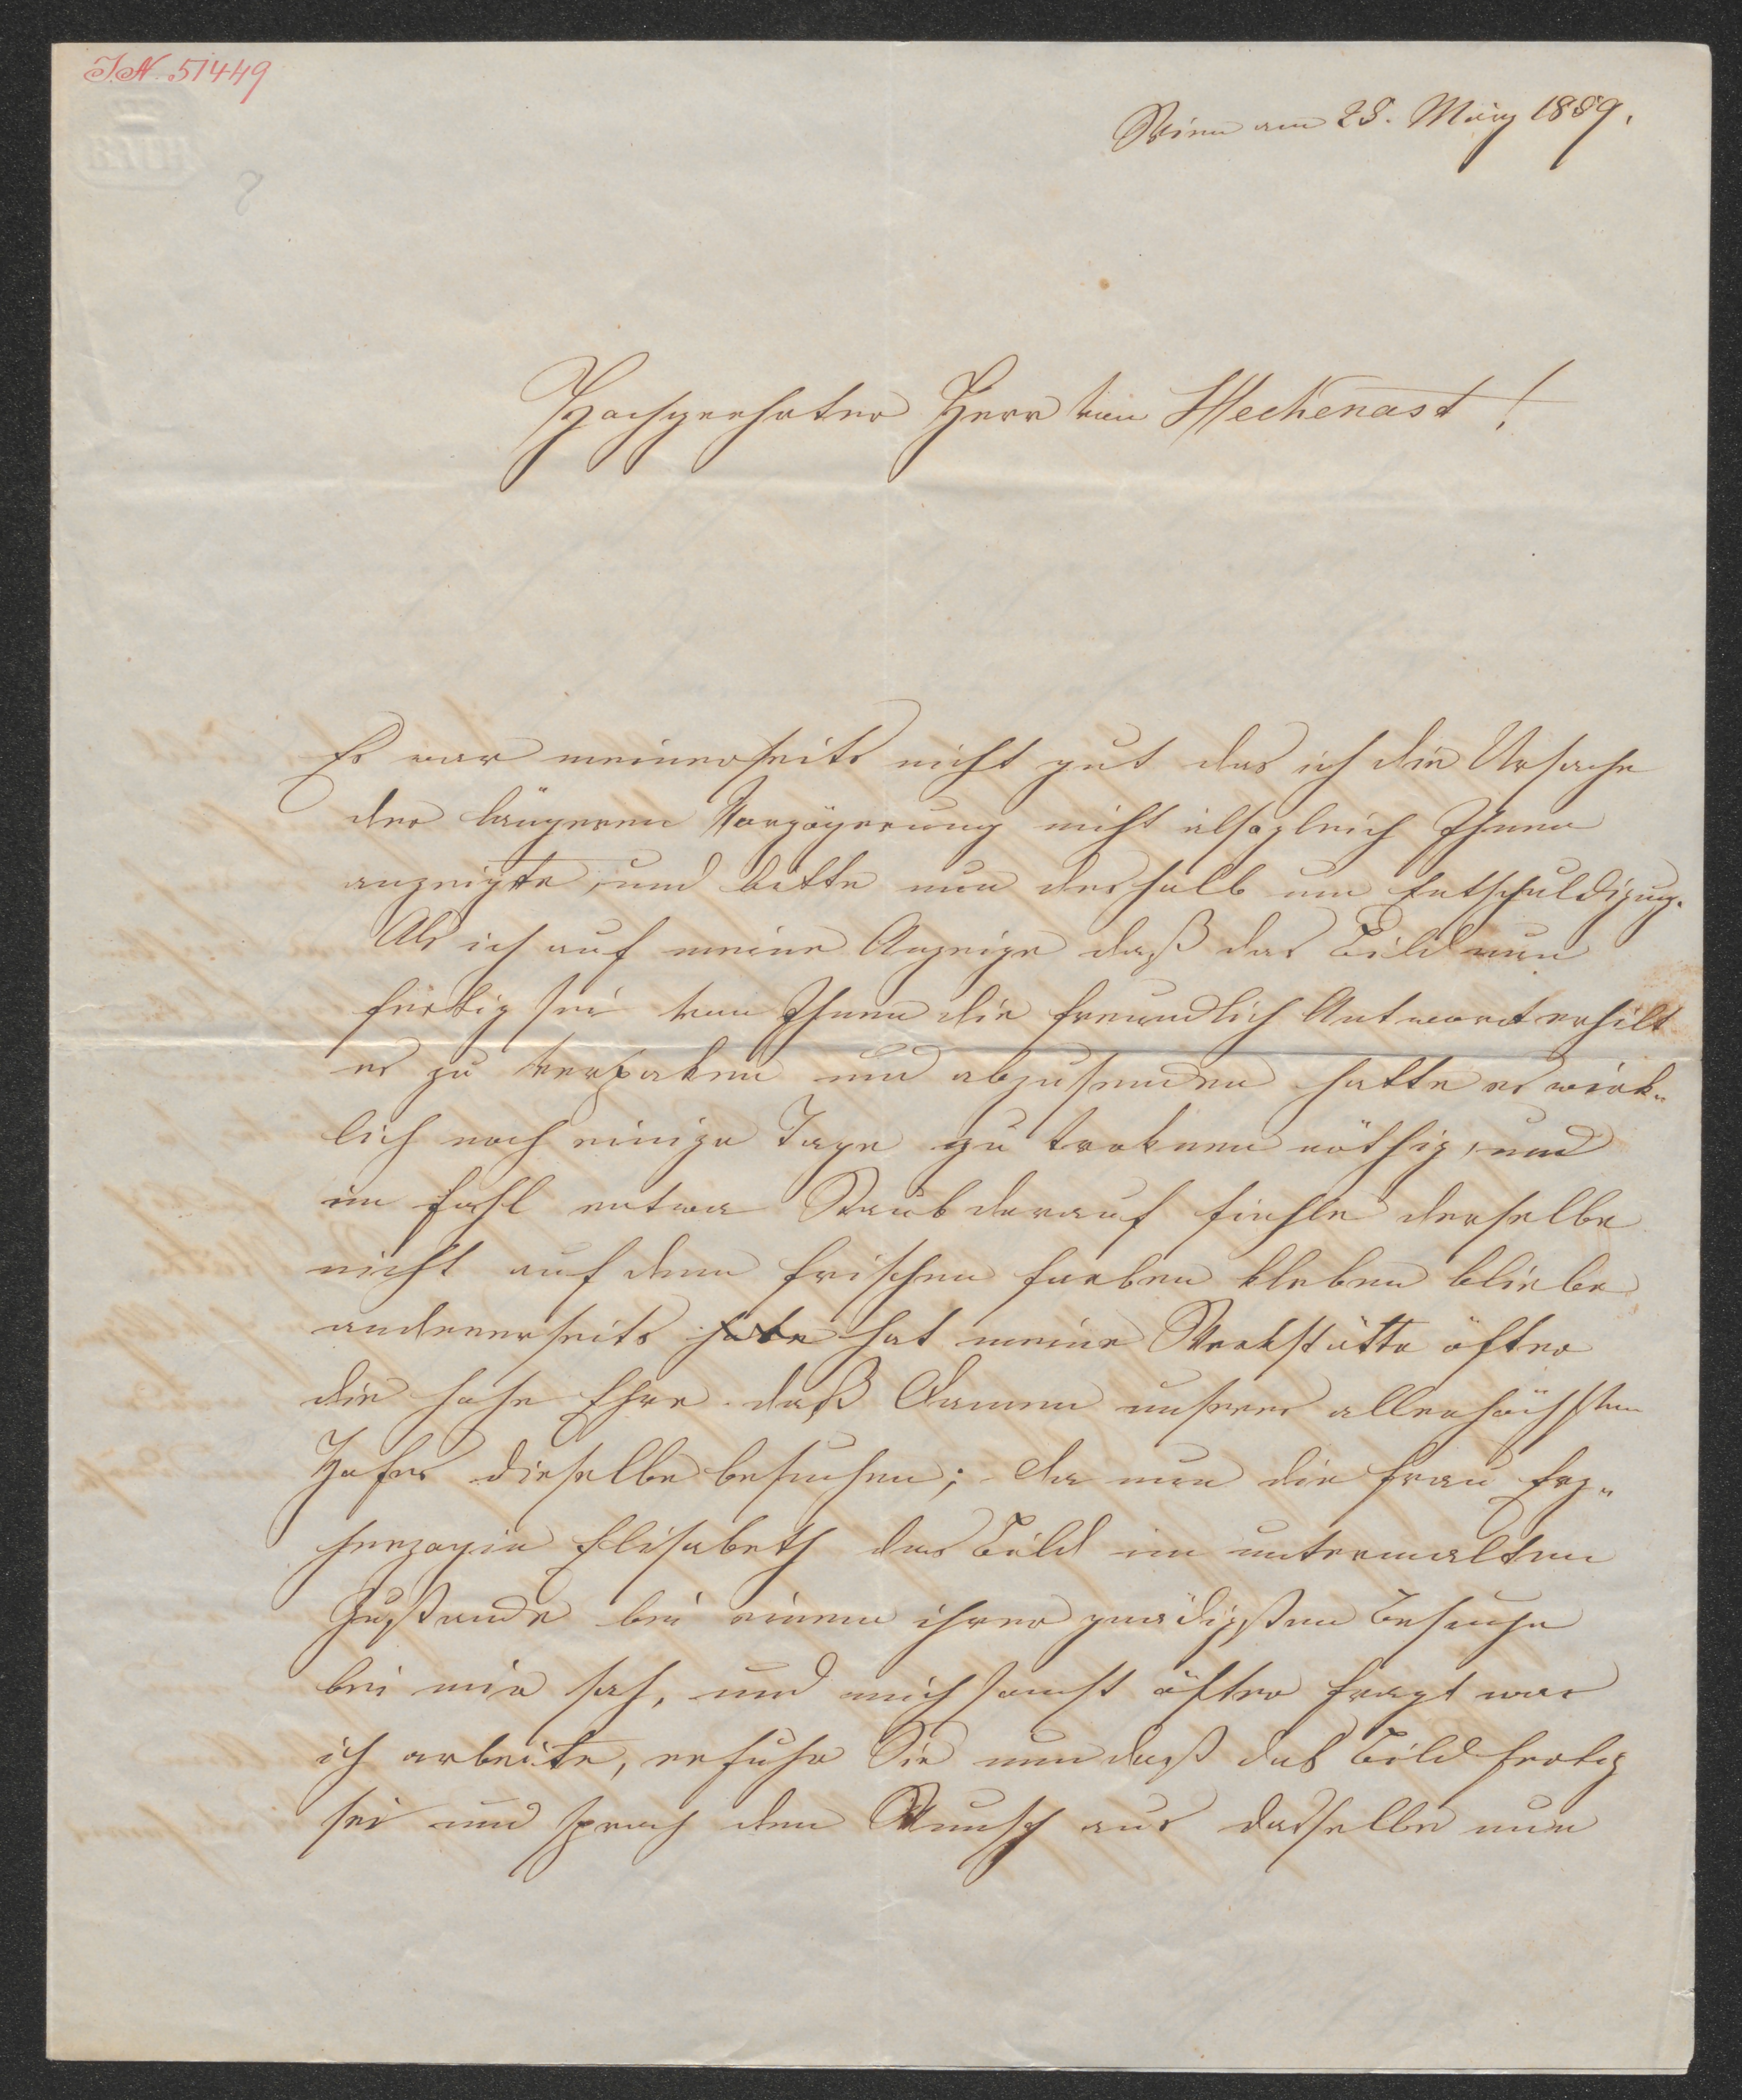 I.N. 51449
BATH
8
Wien am 28. März 1859.
Hochgeehrter Herr von Heckenast!
Es war meinerseits nicht gut das ich die Ursache
der längeren Verzögerung nicht alsogleich Ihnen
anzeigte, und bitte nun deshalb um Entschuldigung.
Als ich auf meine Anzeige daß das Bild nun
fertig sei von Ihnen die freundlich Antwort erhilt
es zu verpaken und abzusenden hatte es wirk-
lich noch einige Tage zu troknen nöthig, und
im Fahl etwa Staub darauf fiehle derselbe
nicht auf den frischen Farben kleben bliebe
andererseits hate hat meine Werkstätte öfter
die hohe Ehre daß Damen unseres allerhöchsten
Hofes dieselbe besuchen; da nun die Frau Erz-
herzogin Elisabeth das Bild im untermalten
Zustande bei einem ihrer gnädigsten Besuche
bei mir sah, und mich sonst öfter fragt was
ich arbeite, erfuhr Sie nun daß das Bild fertig
sei und sprach den Wunsch aus dasselbe nun